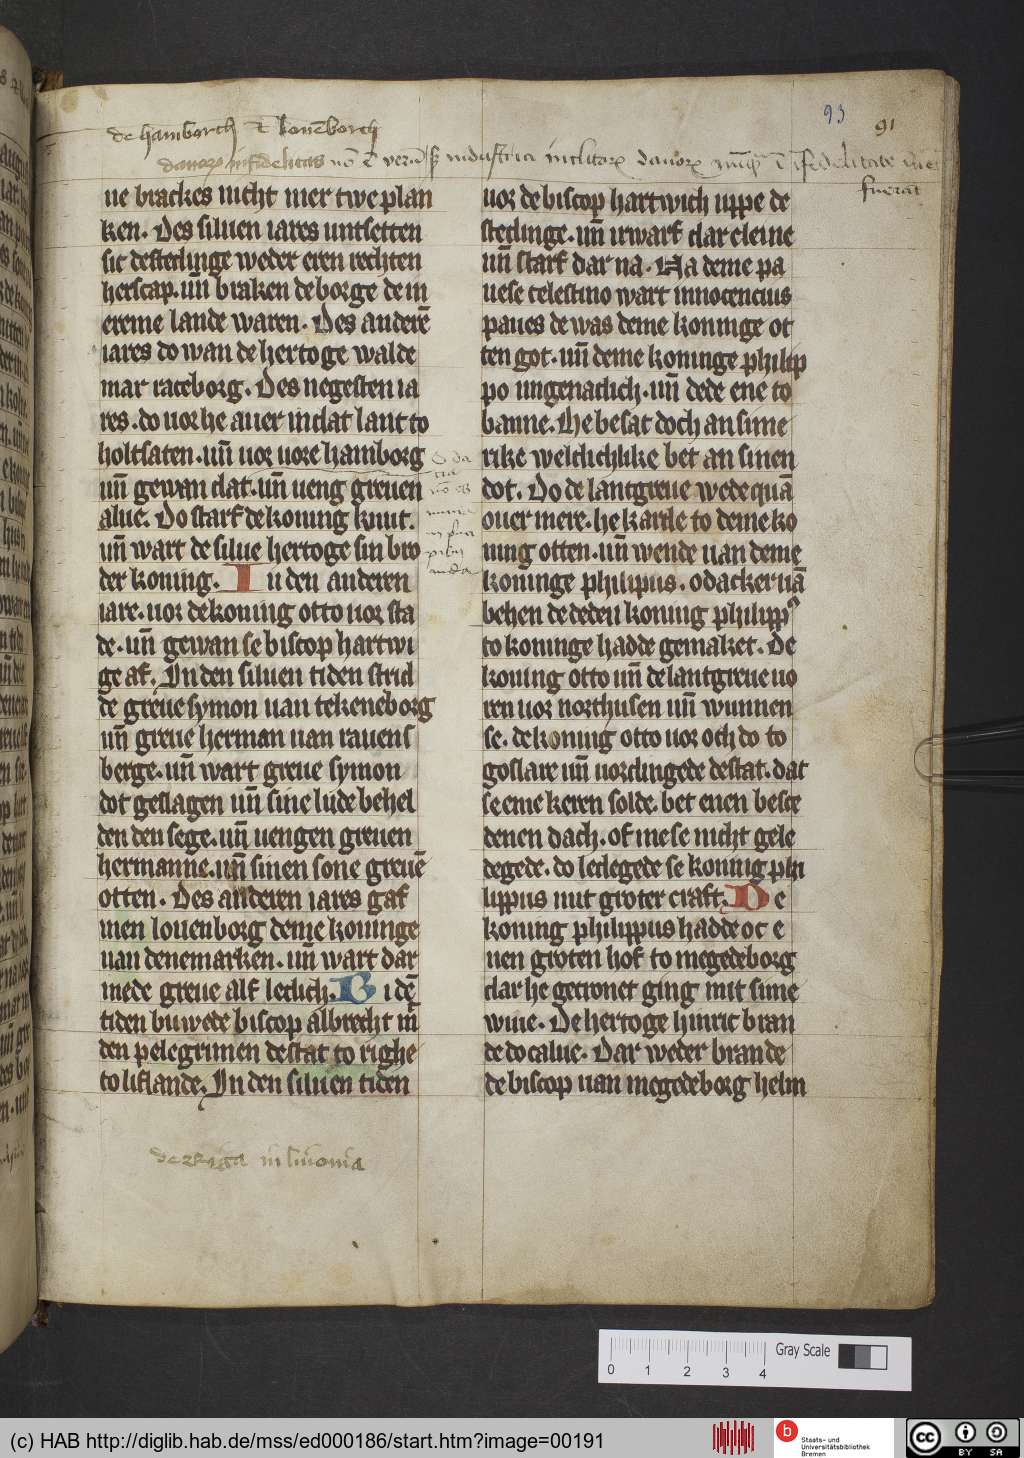 93
91
de hamborch et louenborch
danorum infidelitas
fuerat
ne brackes nicht mer twe plan
ken. Des siluen iares untsetten
sic destedinge weder eren rechten
herscap. uñ braken de borge de in
ereme lande waren. Des anderē
iares do wan de hertoge walde
mar raceborg. Des negesten ia
res. do uor he auer in dat lant to
holtsaten. uñ uor uore hamborg
uñ gewan dat. uñ ueng greuen
alue. Do starf de koning knut.
uñ wart de silue hertoge sin bro
der koning. In den anderen
iare. uor de koning otto uor sta
de. uñ gewan se biscop hartwi
ge af. In den siluen tiden strid
de greue symon uan tekeneborg
uñ greue herman uan rauens
berge. uñ wart greue symon
dot geslagen uñ sine lude behel
den den sege. uñ uengen greuen
hermanne. uñ sinen sone greuē
otten. Des anderen iares gaf
men louenborg deme koninge
uan denemarken. uñ wart dar
mede greue alf ledich. Bi dē
tiden buwede biscop albrecht m̄
den pelegrimen de stat to righe
to liflande. In den siluen tiden
de Riga in liuonia
uor de biscop hartwich uppe de
stedinge. uñ irwarf dar cleine
uñ starf dar na. Na deme pa
uese celestino wart innocencius
paues de was deme koninge ot
ten got. uñ deme koninge philip
po ungenadich. uñ dede ene to
banne. He besat doch an sime
rike weldichlike bet an sinen
dot. Do de lantgreue wede quā
ouer mere. he karde to deme ko
ning otten. uñ wende uan deme
koninge philipus. odacker uā
behen de deden koning philipp9
to koninge hadde gemaket. De
koning otto uñ de lantgreue uo
ren uor northusen uñ wunnen
se. de koning otto uor och do to
goslare uñ uordingede de stat. dat
se eme keren solde. bet enen besce
denen dach. of me se nicht gele
degede. do ledegede se koning phi
lippus mit groter craft. De
koning philippus hadde oc e
nen groten hof to megedeborg
dar he gecronet ging mit sime
wiue. De hertoge hinric bran
de do calue. Dar weder brande
de biscop uan megedeborg helm
Gray Scale
0 1 2 3 4
(c) HAB http://diglib.hab.de/mss/ed000186/start.htm?image=00191
b
Staats- und
Universitätsbibliothek
Bremen
cc
BY SA